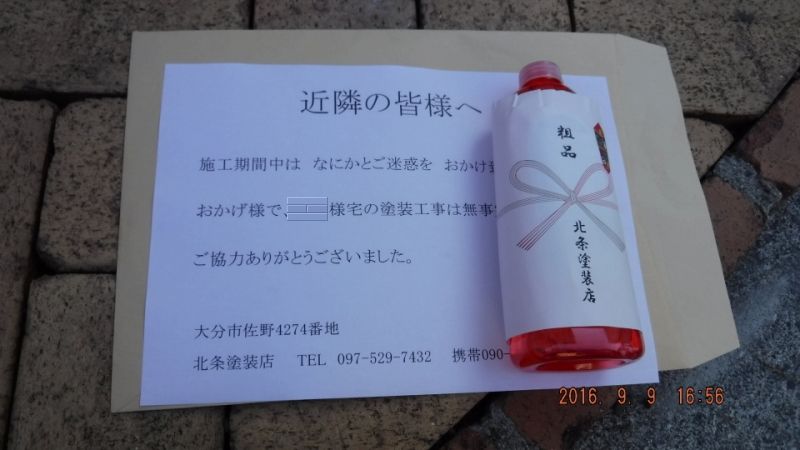 近隣の皆様へ
施工期間中は なにかとご迷惑を おかけ
おかげ様で、
様宅の塗装工事は無事
ご協力ありがとうございました。
大分市佐野4274番地
北条塗装店 TEL 097-529-7432 携帯090-
粗品
北条塗装店
2016. 9. 9 16:56